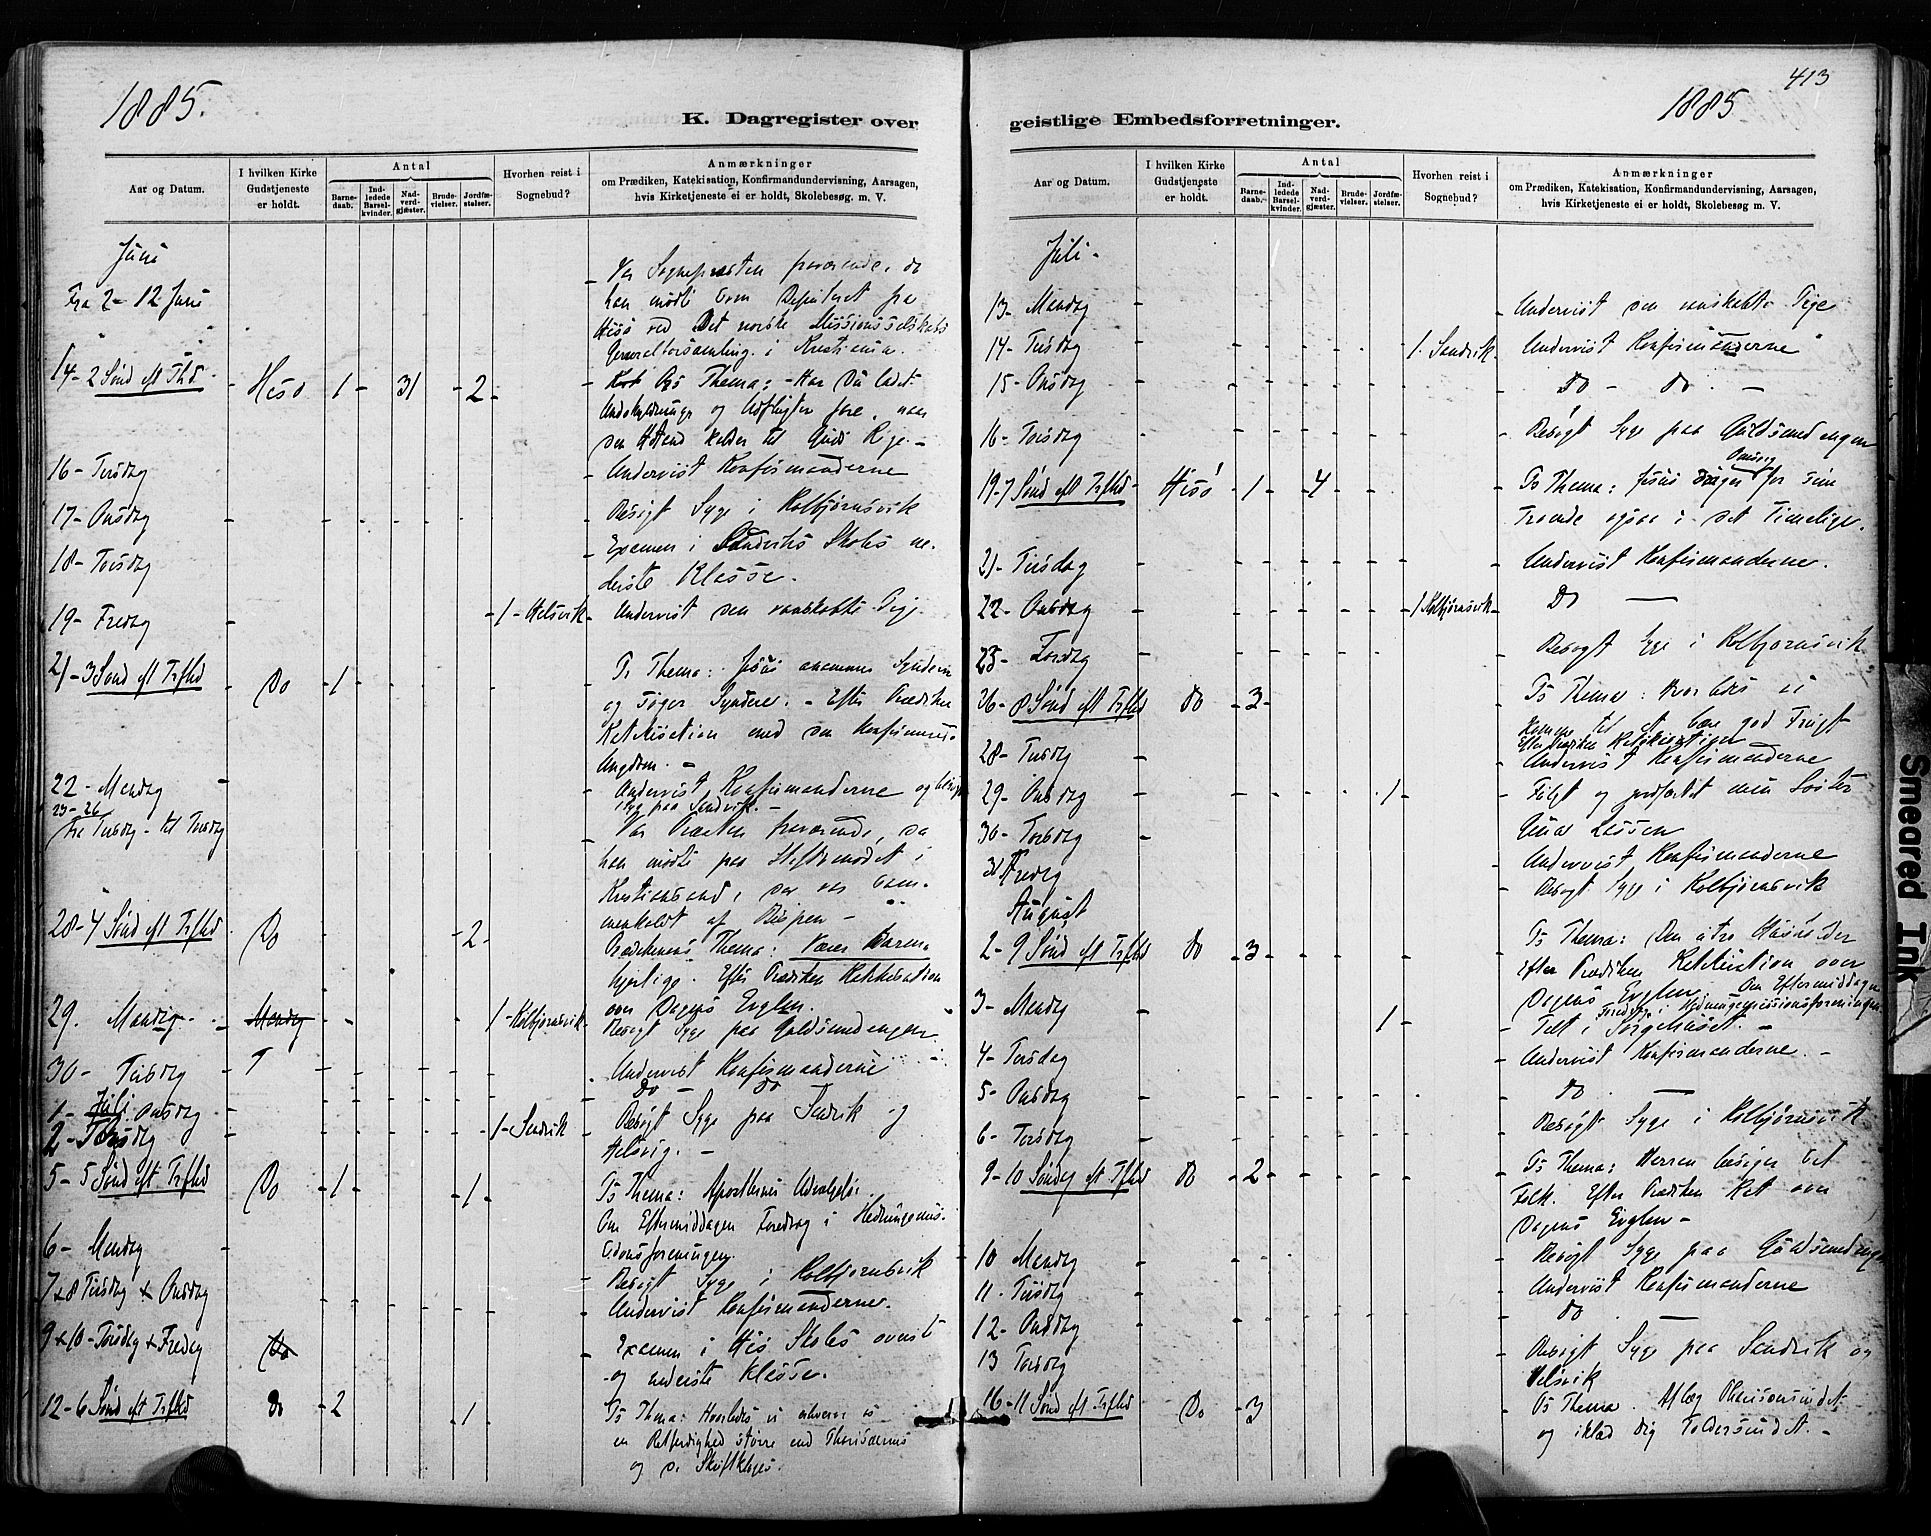 1885.
K. Dagregister over
Aar og Datum.
I hvilken Kirke Gudstjeneste er holdt.
Antal
Barnedaab.
Indledede Barselkvinder.
Nadverdgjæster.
Brudevielser.
Jordfæstelser.
Hvorhen reist i Sognebud?
Anmærkninger
om Prædiken, Katekisation, Konfirmandundervisning, Aarsagen,
hvis Kirketjeneste ei er holdt, Skolebesøg m. V.
Juni
Fra 2 - 12 Juni
Var Sognepresten fraværende, da
han mødte som Deputeret fra
Hisö ved Det norske Missionsselskabs
Generalforsamling i Kristiania.
14- 2 Sønd eft Tfhd - Hisö 1 - 31 - 2 -
Ps Thema: - Har Du ladet
Undskyldninge og Udflugter fare, naar
kalder til Guds Rige. -
16- Tirsdag
Undervist Konfirmanderne
17- Onsdag
Besøgt Syge i Kolbjørnsvik
18- Torsdag
Examen i Sandviks Skoles ne-
derste Klasse.
19- Fredag
1 - Helsvik
Undervist den vanskabte Pige.
21- 3 Sønd eft Trfhd Do 1
Ps Thema: Jesus annammer Syndere
og søger Syndere. - Efter Prædiken
Katekisation med den konfirmerede
Ungdom. -
22 - Mandag
Undervist Konfirmanderne og besøgt
Syg paa Sandvik. -
23 - 26
Fra Tirsdag - til
Var Præsten fraværende, da
han mødte paa Stiftsmødet i
Kristianssand, der var sam-
menkaldt af Bispen -
28- 4 Sønd eft Trfhd Do - 2 -
Prædikenens Thema: Værer Barm-
hjertige. Efter Prædiken Katekisation
over Dagens Evglm.
29. Mandag Mandag
1 - Kolbjørnsvik
Besøgt Syge paa Guldsmedengen
30 - Tirsdag T
Undervist Konfirmanderne
1 - Juli Onsdag
Do - Do
2 - Torsdag
1 - Sandvik
Besøgt Syge paa Sandvik og
Helsvig. -
5 - 5 Sønd eft Trfhd Do 1 - 1
Ps Thema: Apostlenes Udvælgelse.
Om Eftermiddagen Foredrag i Hedningemis-
sionsforeningen.
6 - Mandag
Besøgt Syge i Kolbjørnsvik
7 & 8 Tirsdag & Onsdag
Undervist Konfirmanderne.
9 & 10 - Torsdag & Fredag Do
Examen i Hisö Skoles øverste
og nederste Klasse.
12 - 6 Sønd eft Trfhd Do 2 - 1
Ps Thema: Hvorledes vi erhverve os
en Retfærdighed større end Pharisæernes
og de Skriftkloges.
413
1885
geistlige Embedsforretninger.
Aar og Datum.
I hvilken Kirke Gudstjeneste er holdt.
Antal
Barnedaab.
Indledede Barselkvinder.
Nadverdgjæster.
Brudevielser.
Jordfæstelser.
Hvorhen reist i Sognebud?
Anmærkninger
om Prædiken, Katekisation, Konfirmandundervisning, Aarsagen,
hvis Kirketjeneste ei er holdt, Skolebesøg m. V.
Juli -
13 - Mandag
Undervist den vanskabte Pige
14 - Tirsdag
1. Sandvik
Undervist Konfirmanderne
15 - Onsdag
Do - Do. -
16 - Torsdag
Besøgt Syge paa Guldsmedengen
19 - 7 Sønd eft Trfhd Hisö 1 - 4
Ps Thema: Jesus drager Omsorg for sine
Troende ogsaa i det Timelige.
21 - Tirsdag
Undervist Konfirmanderne.
22 - Onsdag
1 Kolbjørnsvik
Do -
23 - Torsdag
Besøgt Syge i Kolbjørnsvik
26 - 8 Sønd eft Trfhd Do 3
Ps Thema: Hvorledes vi
komme til at bære god Frugt
Efter Prædiken Katekisation
28 - Tirsdag
Undervist Konfirmanderne
29 - Onsdag 1
Fulgt og jordfæstet min Søster
30 - Torsdag
Lassen
31 Fredag
Undervist Konfirmanderne
Besøgt Syge i Kolbjørnsvik
August
2 - 9 Sønd eft Trfhd Do 3
Ps Thema: Den utro Husholder
Efter Prædiken Katekisation over
Dagens Evglm. Om Eftermiddagen
Foredrag i Hedningemissionsforeningen.
3 - Mandag 1
Talt i Sørgehuset. -
4 - Tirsdag
Undervist Konfirmanderne. -
5 - Onsdag
Do. -
6 - Torsdag
Besøgt Syge i Kolbjørnsvik
9 - 10 Søndag eft Trfhd Do 2
Ps Thema: Herren besøger sit
Folk. Efter Prædiken Kat over
Dagens Evglm -
10 Mandag
Besøgt Syge paa Guldsmedengen
11. Tirsdag
Undervist Konfirmanderne
12 - Onsdag
Do -
13 Torsdag
Besøgt Syge paa Sandvik og
Helsvik
16 - 11 Sønd eft Trfhd Do 3
Ps Thema. Aflæg Pharisæersindet
og iklæd Dig Toldersindet. -
Smeared Ink